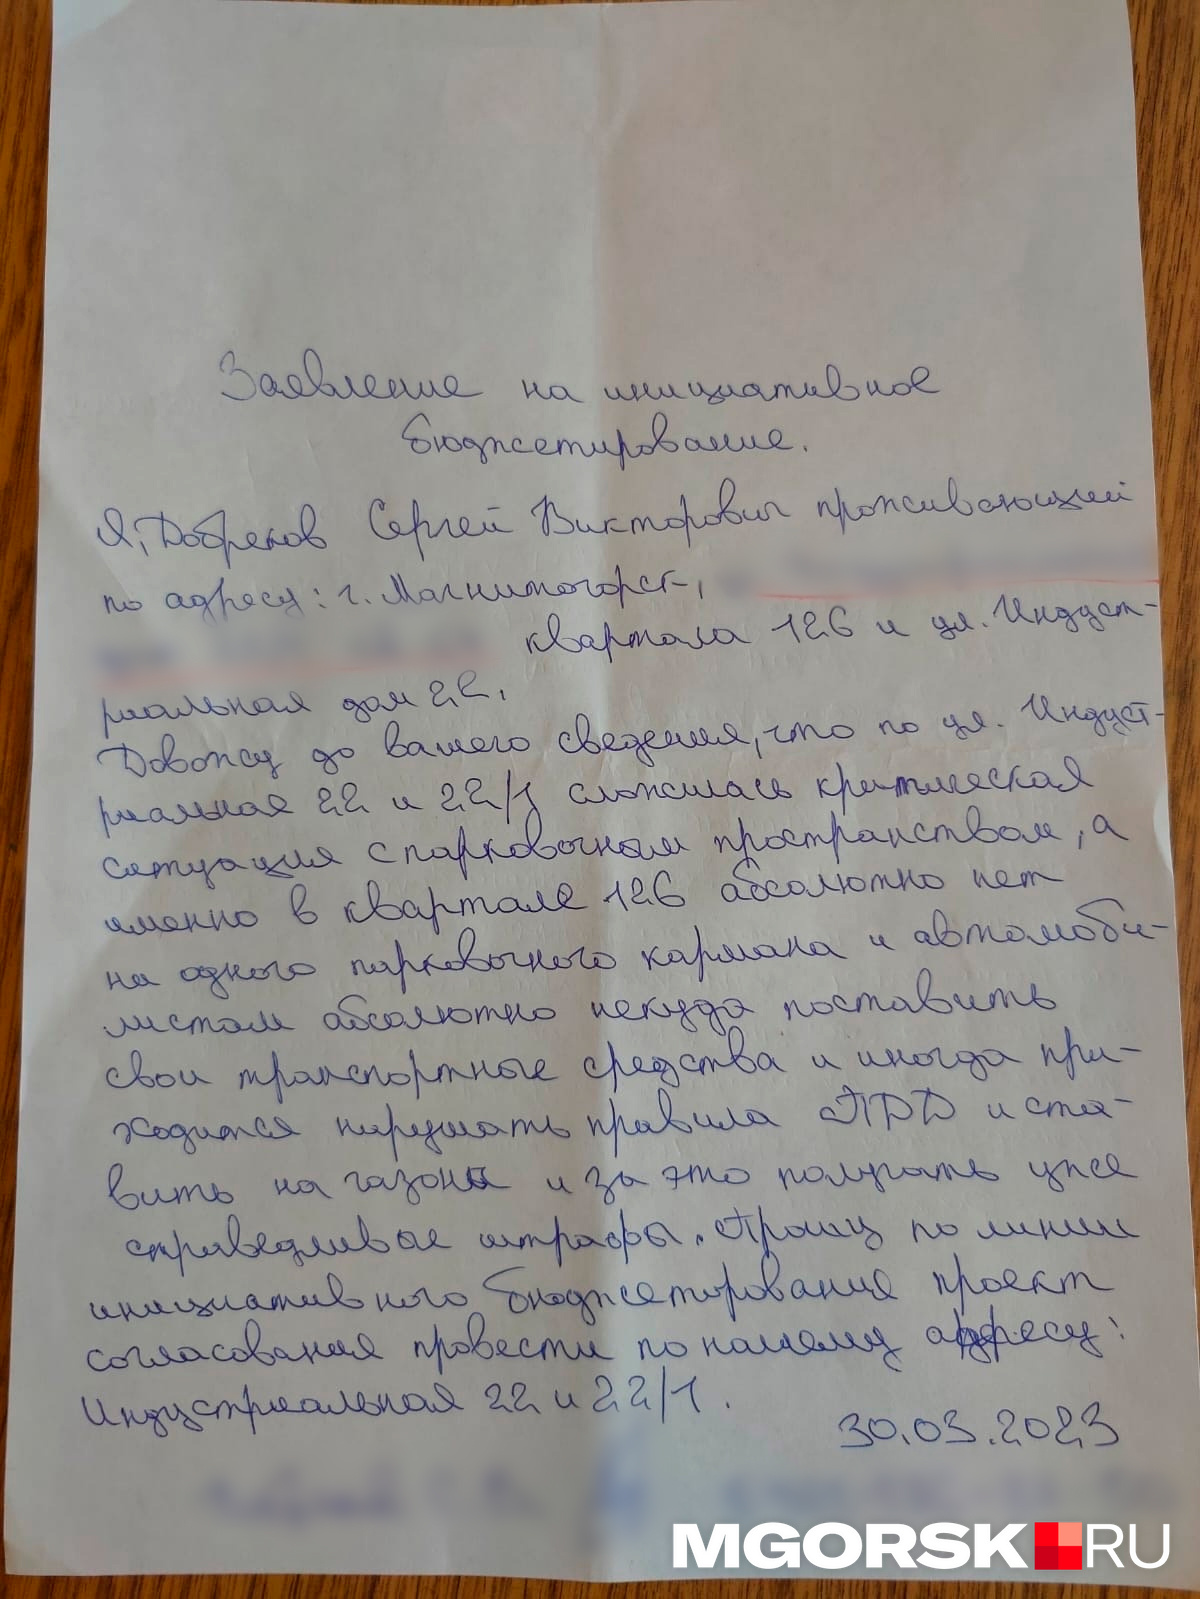 Заявление на инициативное
бюджетирование.
Я, Добреков Сергей Викторович проживающий
по адресу: г. Магнитогорск,
квартала 126 и ул. Индуст-
риальная дом 22.
Довожу до вашего сведения, что по ул. Индуст-
риальная 22 и 22/1 сложилась критическая
ситуация с парковочным пространством, а
именно в квартале 126 абсолютно нет
ни одного парковочного кармана и автомоби-
листам абсолютно некуда поставить
свои транспортные средства и иногда при-
ходится нарушать правила ПДД и ста-
вить на газоны и за это получать уже
справедливые штрафы. Прошу по линии
инициативного бюджетирования проект
согласования провести по нашему адресу:
Индустриальная 22 и 22/1.
30.03.2023
MGORSK.RU